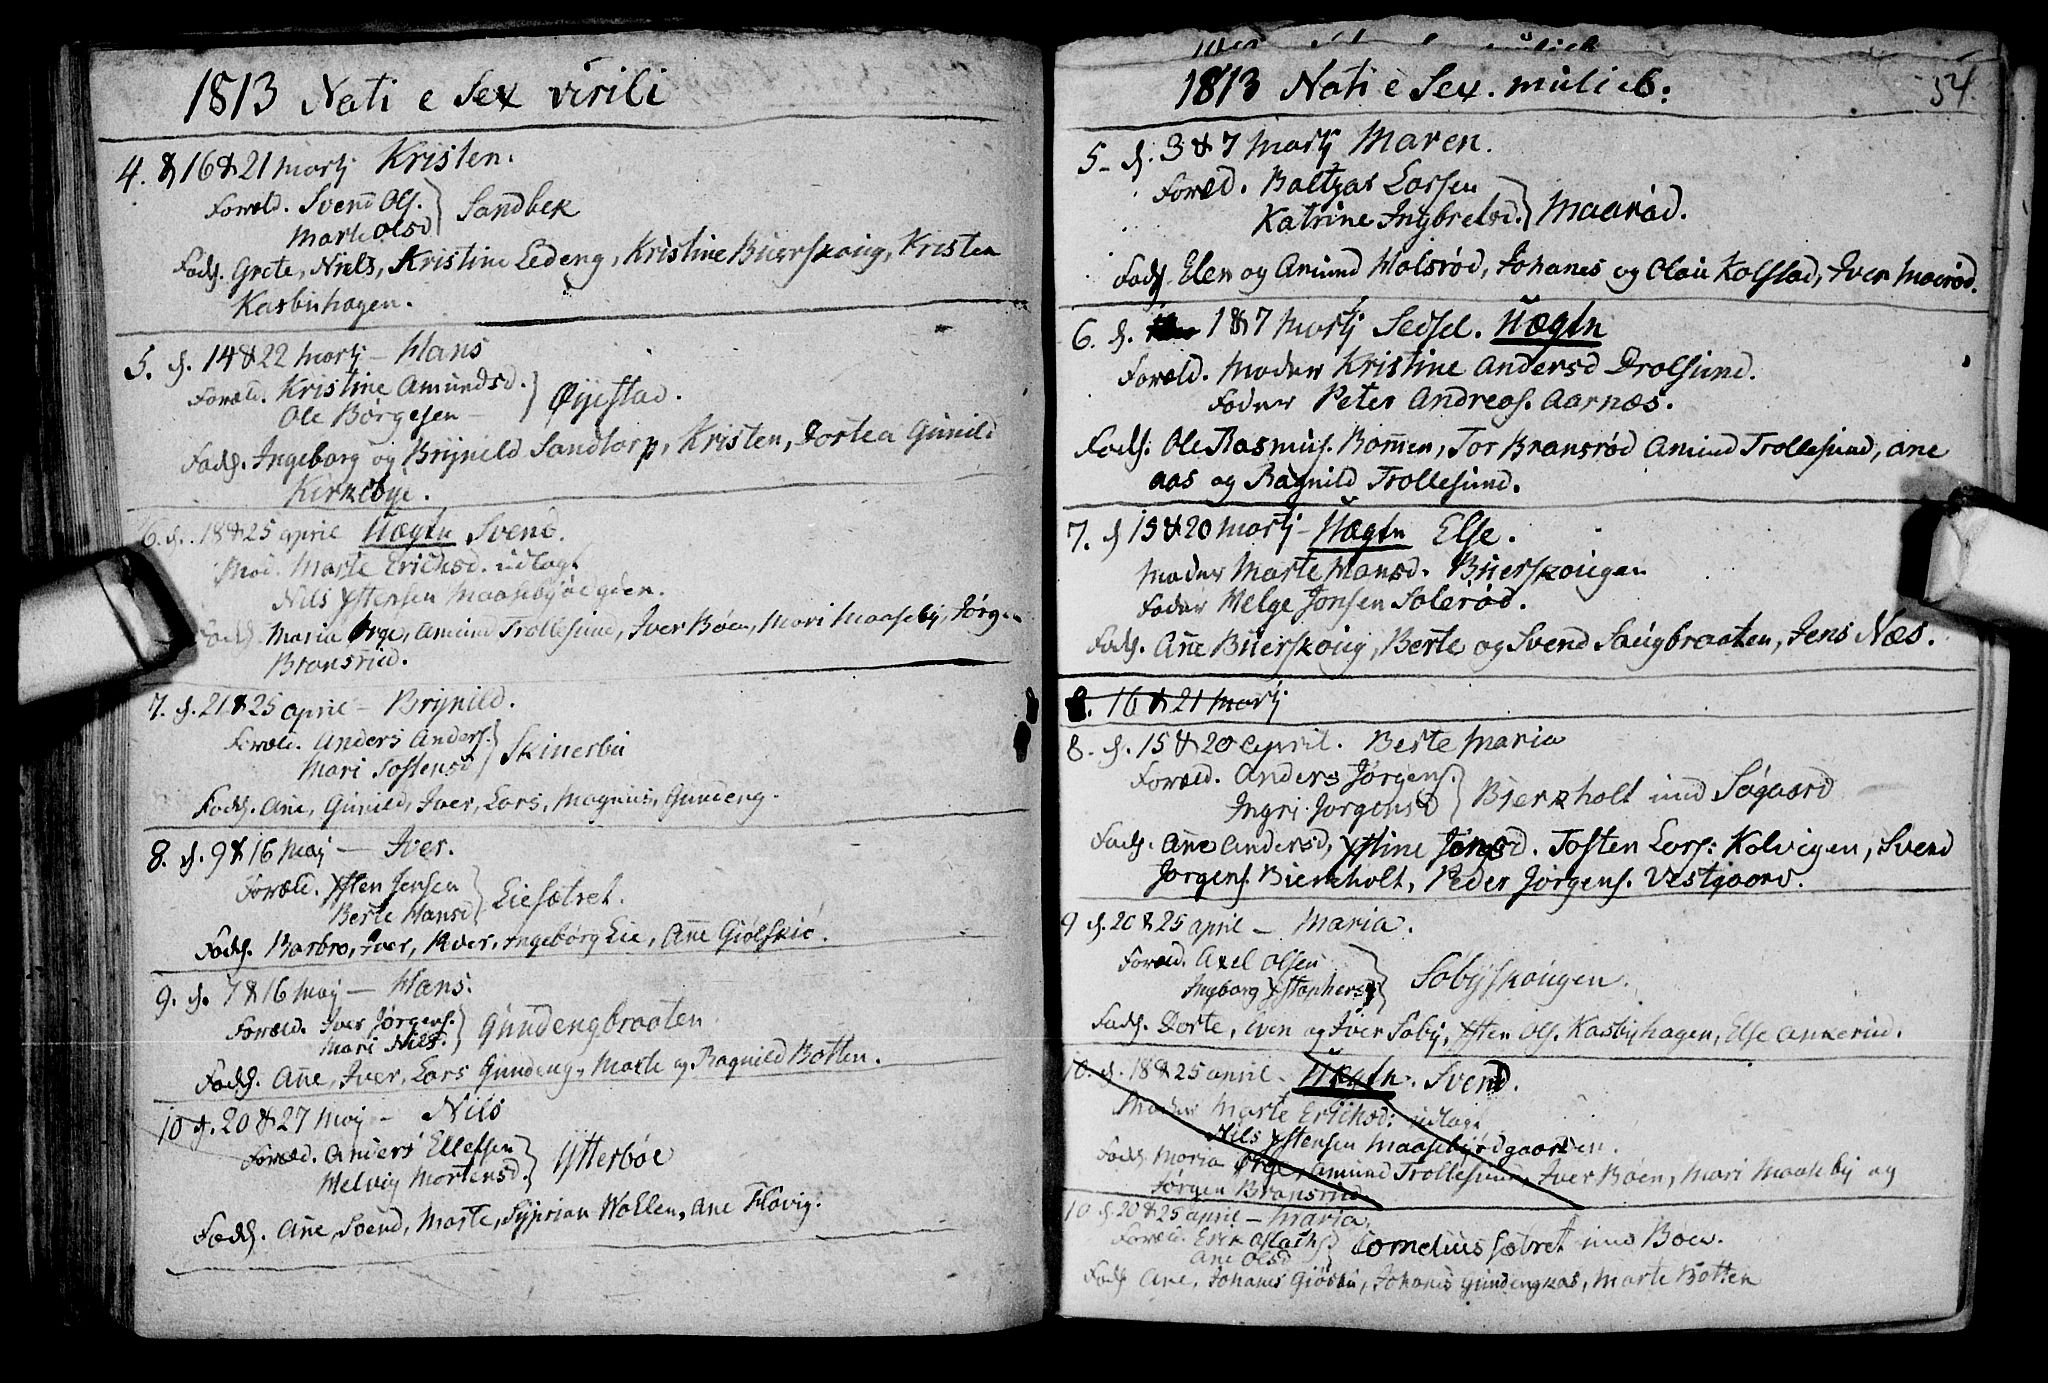 1813 Nati e Sex virili
4. & 16 & 21 Martj Kristen.
Foræld. Svend Ols.
Marte Olsd } Sandbek
Fads. Grete, Niels, Kristine Eedeng, Kristine Buerskoug, Kristen
Kasbuhagen.
5. f. 14 & 22 Martj – Hans
Foræld. Kristine Amundsd.
Ole Børgesen – } Øyestad.
Fads. Ingeborg og Brynild Sandtorp, Kristen, Dortea Gunild
Kirkebye.
6. f. 18 & 25 april Uægtn Svend.
Mod. Marte Erichsd. udlagt
Nils Ystensen Maasebyødgden.
Fads. Maria Ørge, Amund Trollesund, Iver Bøen, Mari Maaseby, Jørgen
Bransrud.
7. f. 21 & 25 april – Brynild.
Foræld. Anders Anders.
Mari Tostensd } Skinesbu
Fads. Ane, Gunild, Iver, Lars, Magnus, Gundeng.
8. f. 9 & 16 Maj — Iver.
Foræld. Ysten Jensen
Berte Hansd } Liesætret.
Fads. Barbro, Iver, Iver, Ingebørg Lie, Ane Giølskiø.
9. f. 7 & 16 Maj — Hans.
Foræld. Iver Jørgens.
Mari Nils. } Gundengbraaten
Fads. Ane, Iver, Lars Gundeng, Marte og Ragnild Botten.
10 f. 20 & 27 Maj – Nils
Foræld. Anders Ellefsen
Helvig Mortensd. } Ytterbøe
Fads. Ane, Svend, Marte, Syprian Wollen, Ane Fløvig.
1813 Nati e Sex. mulieb:
54.
5 – f. 3 & 7 Martj Maren.
Foræld. Baltzar Larsen
Katrine Ingbretsd. } Maarød.
Fads. Elen og Amund Holsrød, Johanes og Olau Kolstad, Iver Maarød.
6. f. 1 & 7 Martj Sedsel. Uægtn
Foræld. Moder Kristine Andersd Drolsund.
Foder Peter Andreas. Aarnæs.
Fads. Ole Rasmus. Bommen, Tor Bransrød Amund Trollesund, Ane
Aas og Ragnild Trollesund.
7. f 15 & 20 Martj – Uægtn Else.
Moder Marte Hansd. Buerskougen
Foder Helge Jonsen Solerød.
Fads. Ane Buerskoug, Berte og Svend Saugbraaten, Jens Næs.
8. 16 & 21 Martj
8. f. 15 & 20 april. Berte Maria
Foræld. Anders Jørgens.
Ingri Jorgensd } Bjerkholt und Søgaard
Fads. Ane Andersd, Ystine Jensd. Tosten Lars: Kolvigen, Svend
Jørgens. Bierkholt, Peder Jørgens. Vestgaard.
9 f. 20 & 25 april – Maria.
Foræld. Axel Olsen
Ingborg Ystophersd } Sobyskougen.
Fads. Dorte, Even og Iver Soby, Ysten Ols. Kasbyhagen, Else Ankerud.
10. f. 18 & 25 april – Uægtn. Svend.
Moder Marte Erichsd: udlagt
Nils Ystensen Maasebyødgaarden.
Fads. Maria Ørge, Amund Trollesund, Iver Bøen, Mari Maaseby og
Jørgen Bransrud
10 f. 20 & 25 april – Maria.
Foræld. Erik Oslachs
Ane Olsd } Cornelius sætret und Bøen.
Fads Ane, Johanes Giøsbu, Johanes Gundengkas, Marte Botten